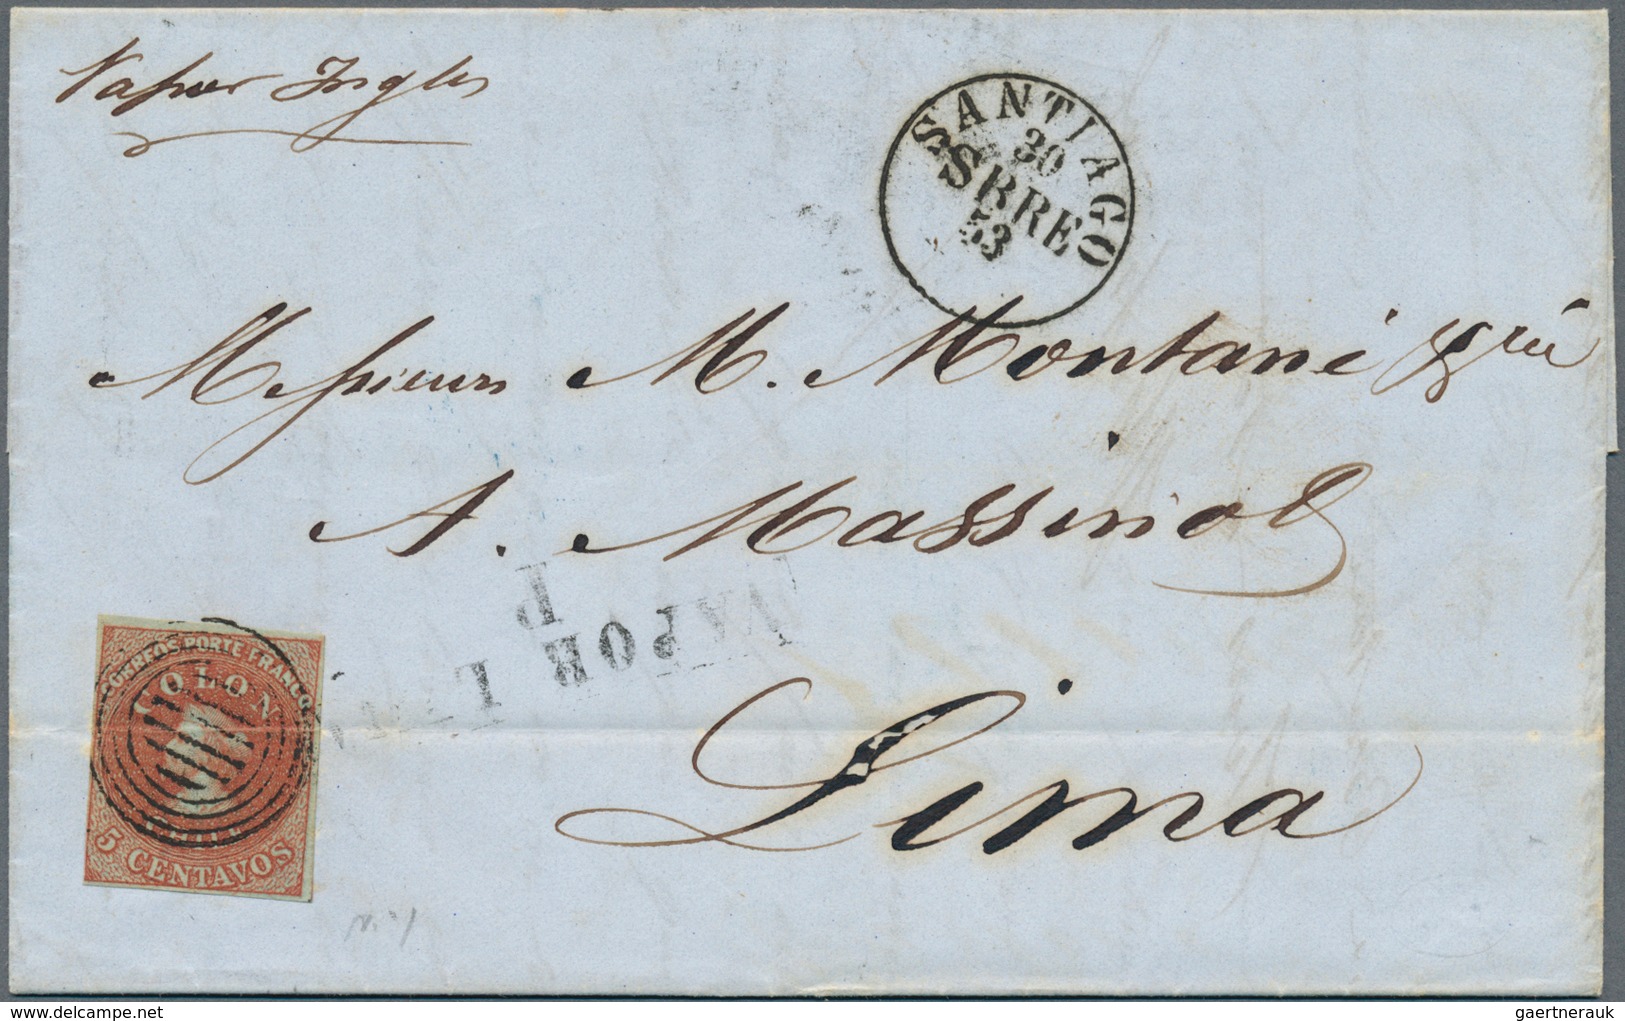 Vapor Ingles
SANTIAGO
30
SBRE
53
Messieurs M. Montané
A. Massinot
P
VAPOR L
Lima
CORREOS PORTE FRANCO
COLON
CHILE
5 CENTAVOS
gaertnerauk